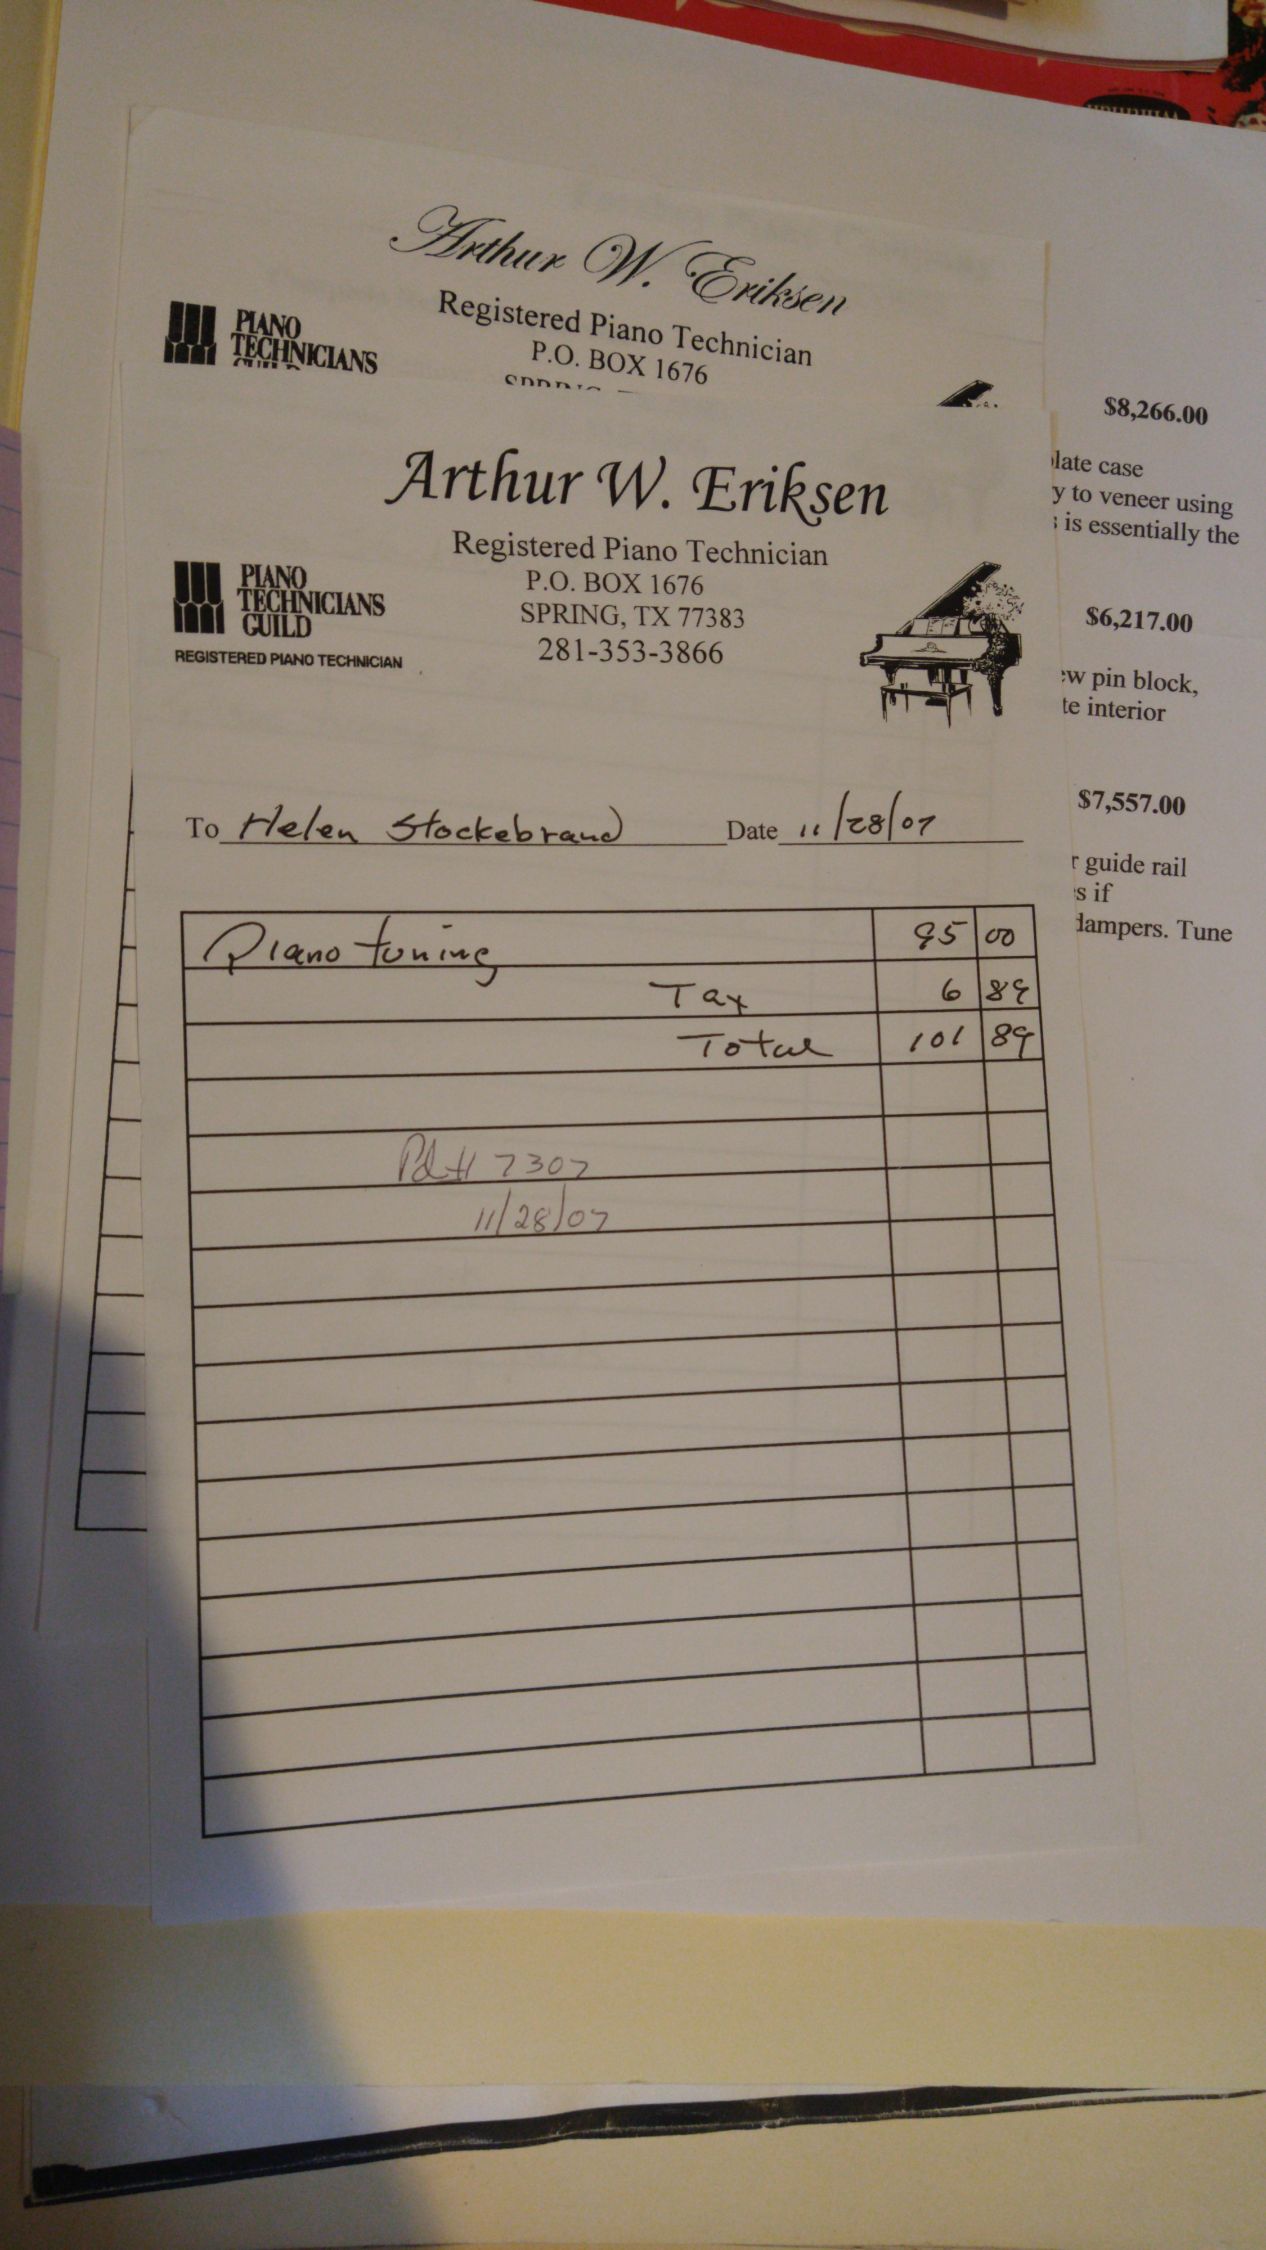 Arthur W. Eriksen
Registered Piano Technician
P.O. BOX 1676
PIANO
TECHNICIANS
Arthur W. Eriksen
Registered Piano Technician
P.O. BOX 1676
SPRING, TX 77383
281-353-3866
PIANO
TECHNICIANS
GUILD
REGISTERED PIANO TECHNICIAN
To Helen Stockebrand Date 11/28/07
Piano tuning 95 00
Tax 6 89
Total 101 89
Pd # 7307
11/28/07
$8,266.00
case
y to veneer using
is essentially the
$6,217.00
pin block,
interior
$7,557.00
guide rail
if
dampers. Tune